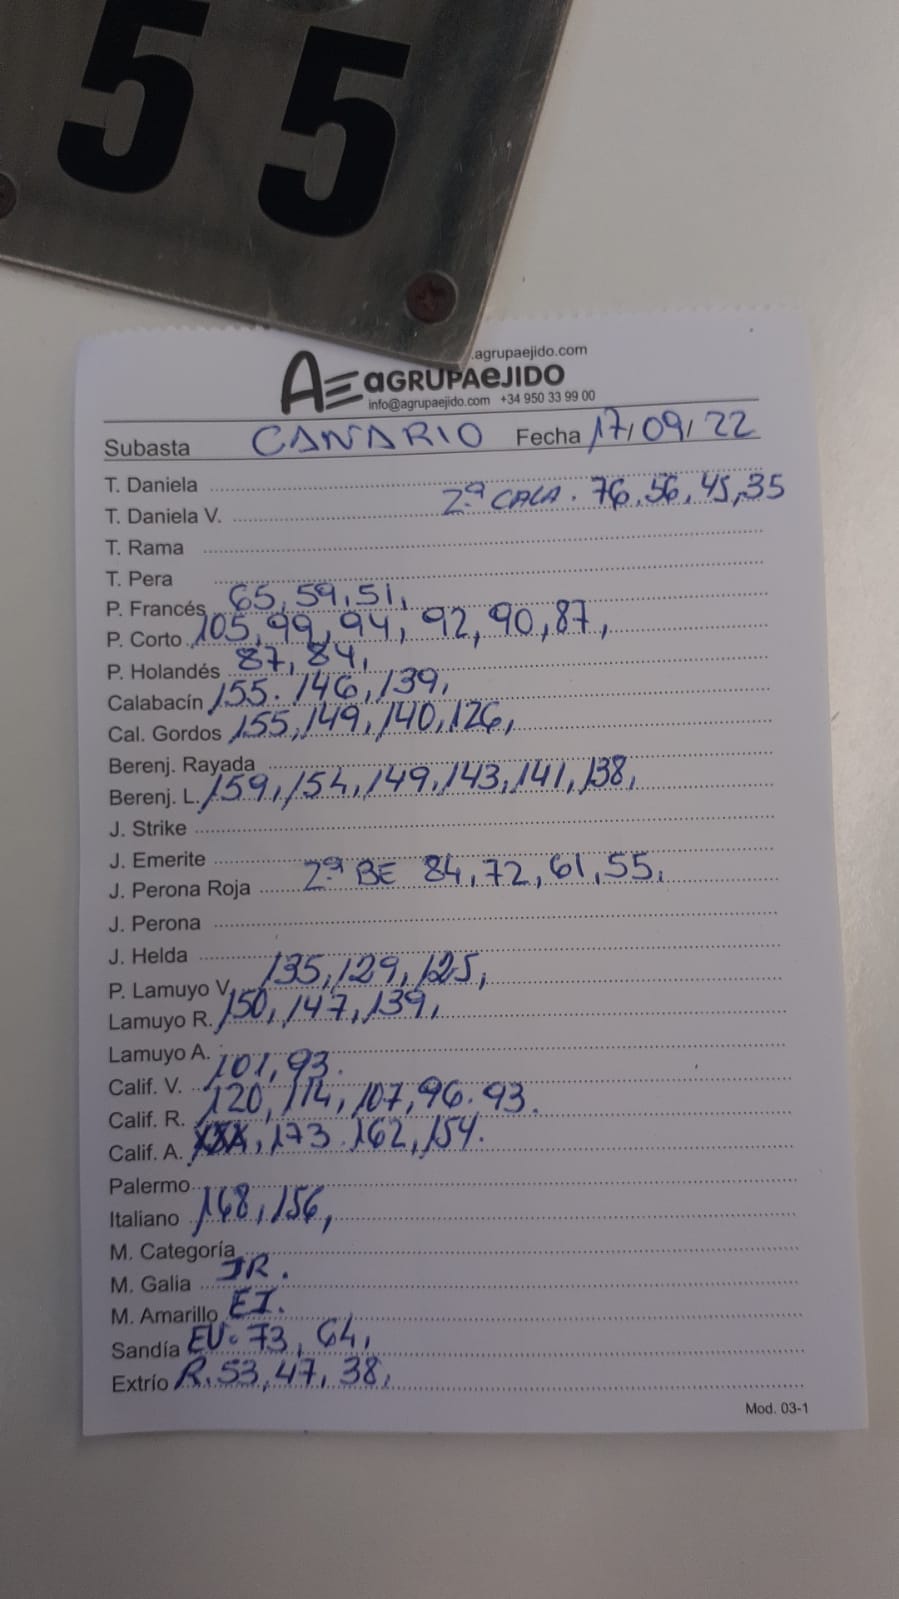 55
.agrupaejido.com
AE aGRUPAeJIDO
info@agrupaejido.com +34 950 33 99 00
Subasta CANARIO Fecha 17/09/22
T. Daniela
T. Daniela V. 2ª CALA. 76,56,45,35
T. Rama
T. Pera
P. Francés 65,59,51,
P. Corto 105,99,94,92,90,87,
P. Holandés 87,84,
Calabacín 155.146,139,
Cal. Gordos 155,149,140,126,
Berenj. Rayada
Berenj. L. 159,154,149,143,141,138,
J. Strike
J. Emerite
J. Perona Roja 2ª BE 84,72,61,55,
J. Perona
J. Helda
P. Lamuyo V. 135,129,125,
Lamuyo R. 150,147,139,
Lamuyo A.
Calif. V. 101,93.
Calif. R. 120,114,107,96.93.
Calif. A. 173.162,154.
Palermo
Italiano 168,156,
M. Categoría
M. Galia JR.
M. Amarillo EI.
Sandía EU.73,64,
Extrío R.53,47,38,
Mod. 03-1